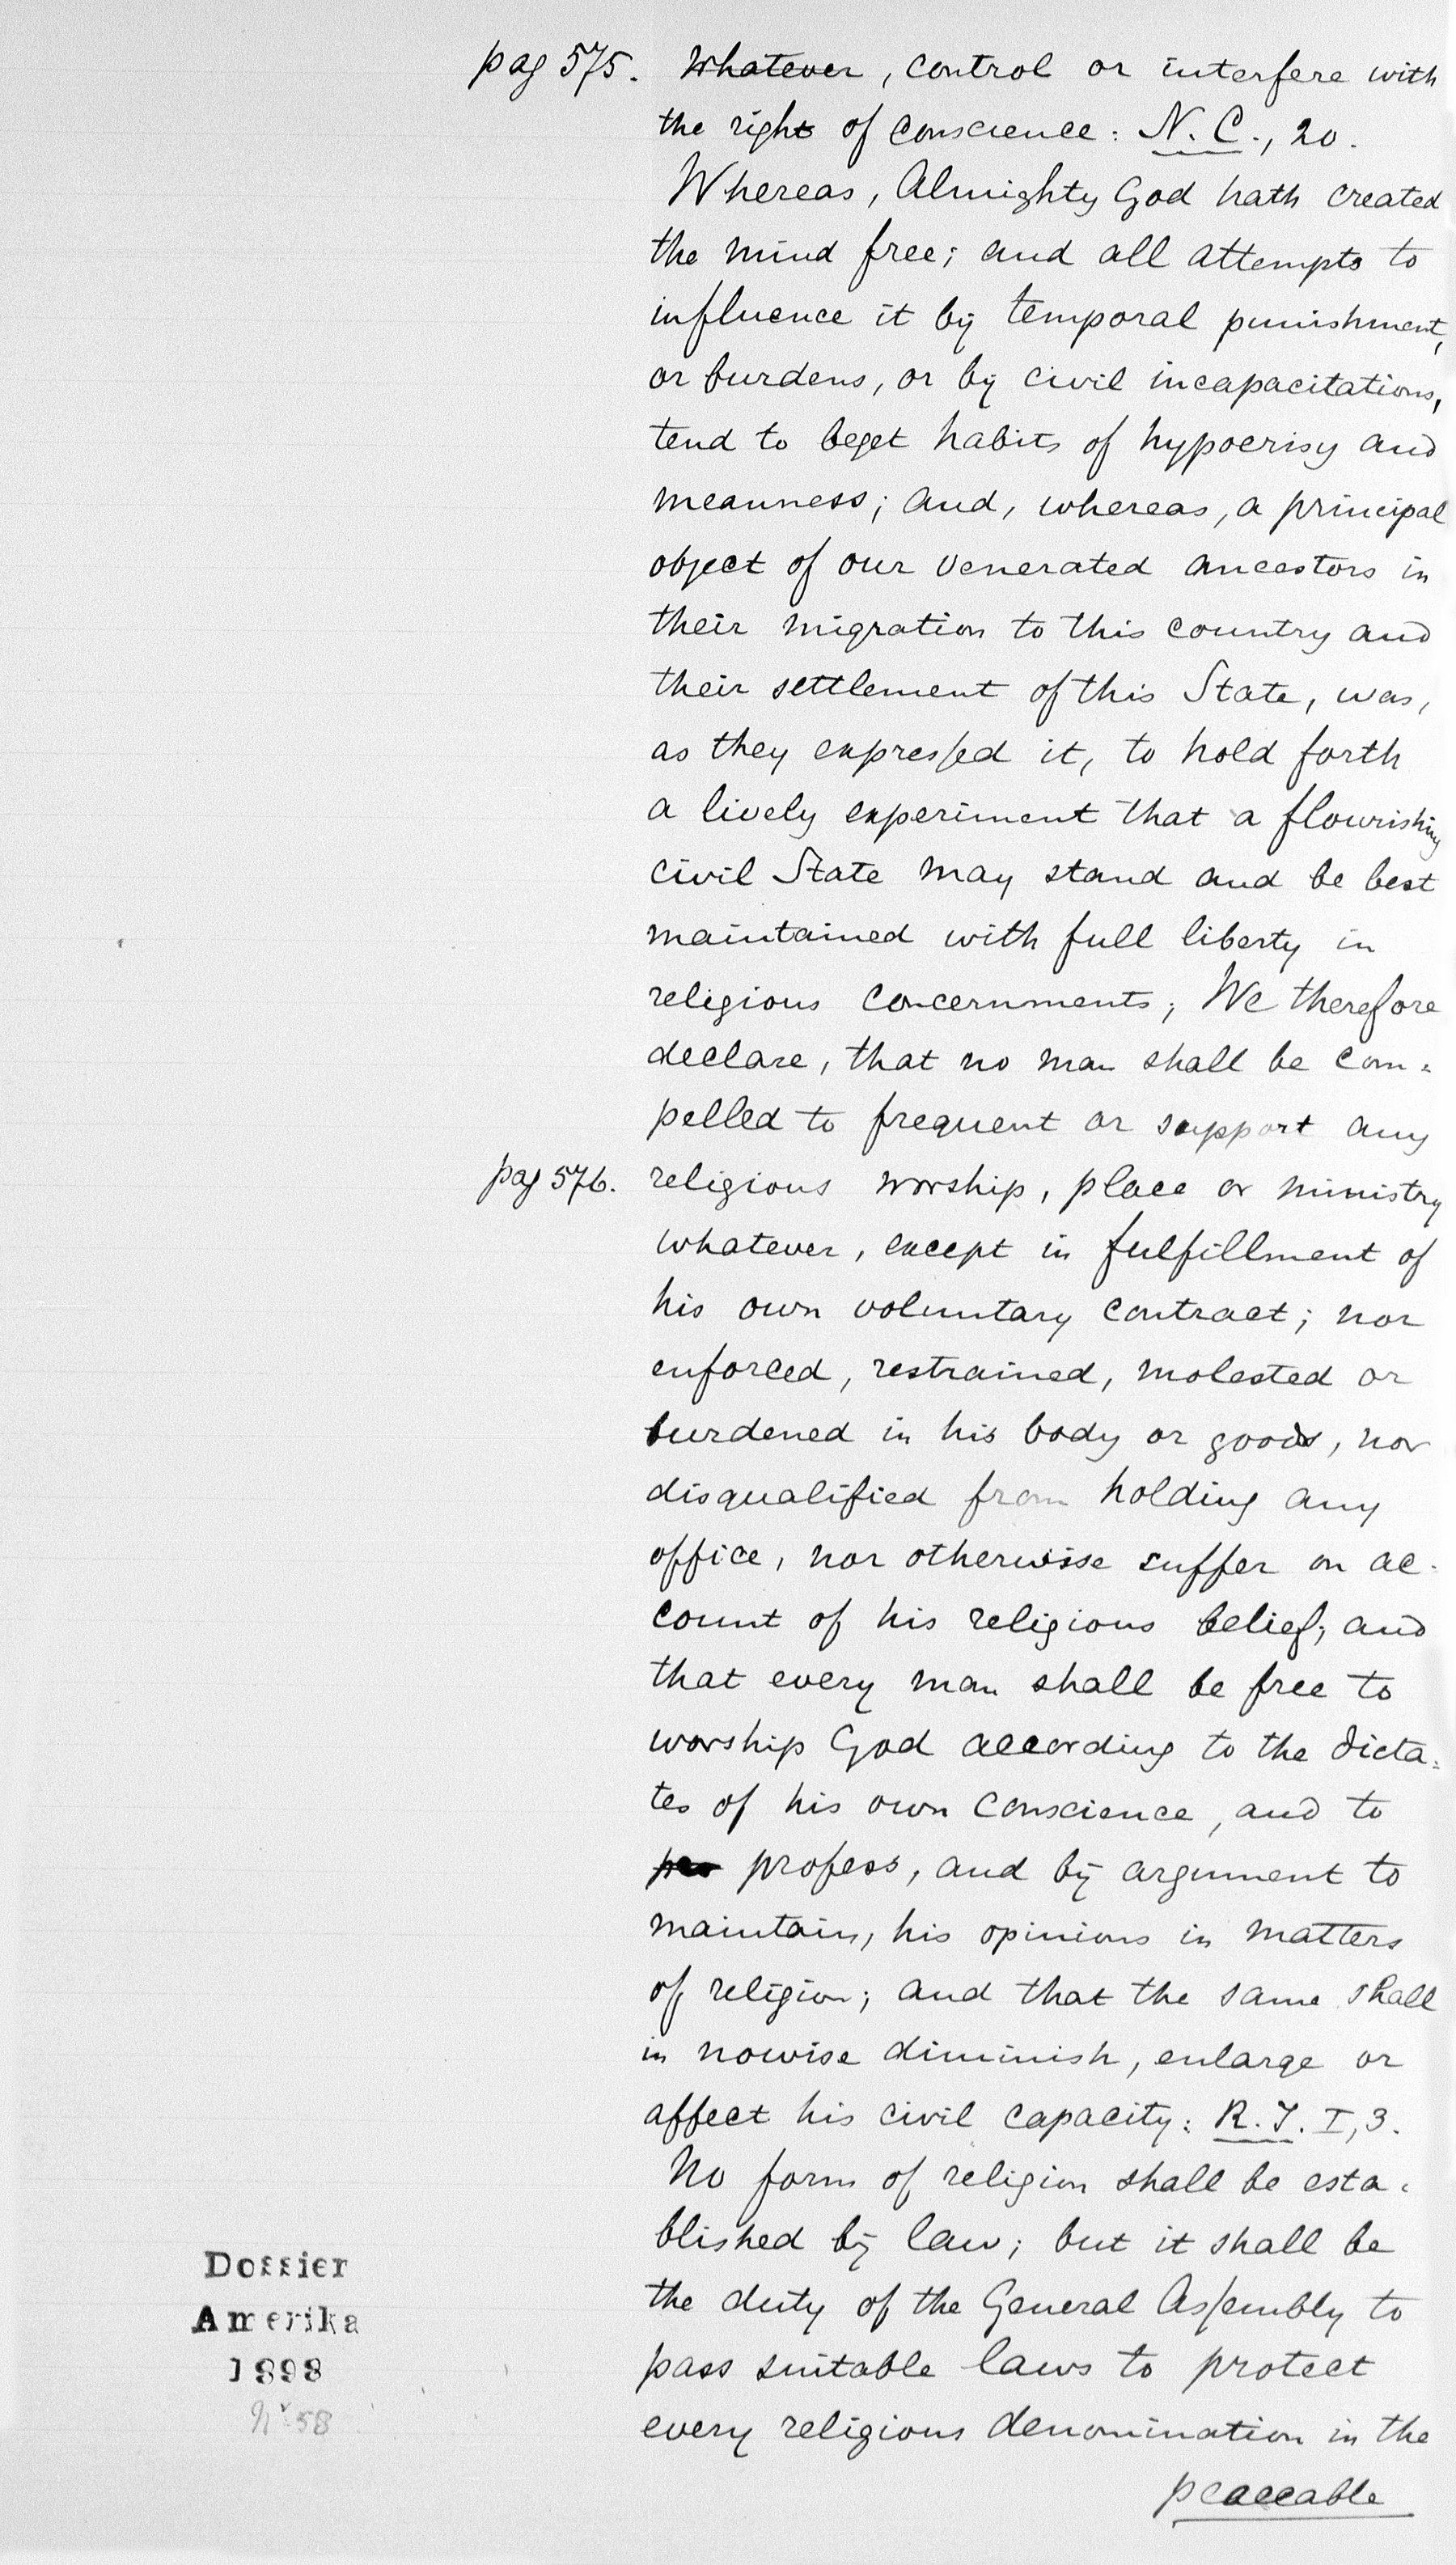 pag 575. Whatever, control or interfere with
the right of conscience: N. C., 20.
Whereas, Almighty God hath created
the mind free; and all attempts to
influence it by temporal punishment,
or burdens, or by civil incapacitations,
tend to beget habits of hypocrisy and
meanness; and, whereas, a principal
object of our venerated ancestors in
their migration to this country and
their settlement of this State, was,
as they expressed it, to hold forth
a lively experiment that a flourishing
civil State may stand and be best
maintained with full liberty in
religious concernments; We therefore
declare, that no man shall be com-
pelled to frequent or support any
pag 576. religious worship, place or ministry
whatever, except in fulfillment of
his own voluntary contract; nor
enforced, restrained, molested or
burdened in his body or goods, nor
disqualified from holding any
office, nor otherwise suffer on ac-
count of his religious belief; and
that every man shall be free to
worship God according to the dicta-
tes of his own conscience, and to
profess, and by argument to
maintain, his opinions in matters
of religion; and that the same shall
in nowise diminish, enlarge or
affect his civil capacity: R. I. I, 3.
No form of religion shall be esta-
blished by law; but it shall be
the duty of the General Assembly to
pass suitable laws to protect
every religious denomination in the
peaceable
Dossier
Amerika
1898
Nr 58